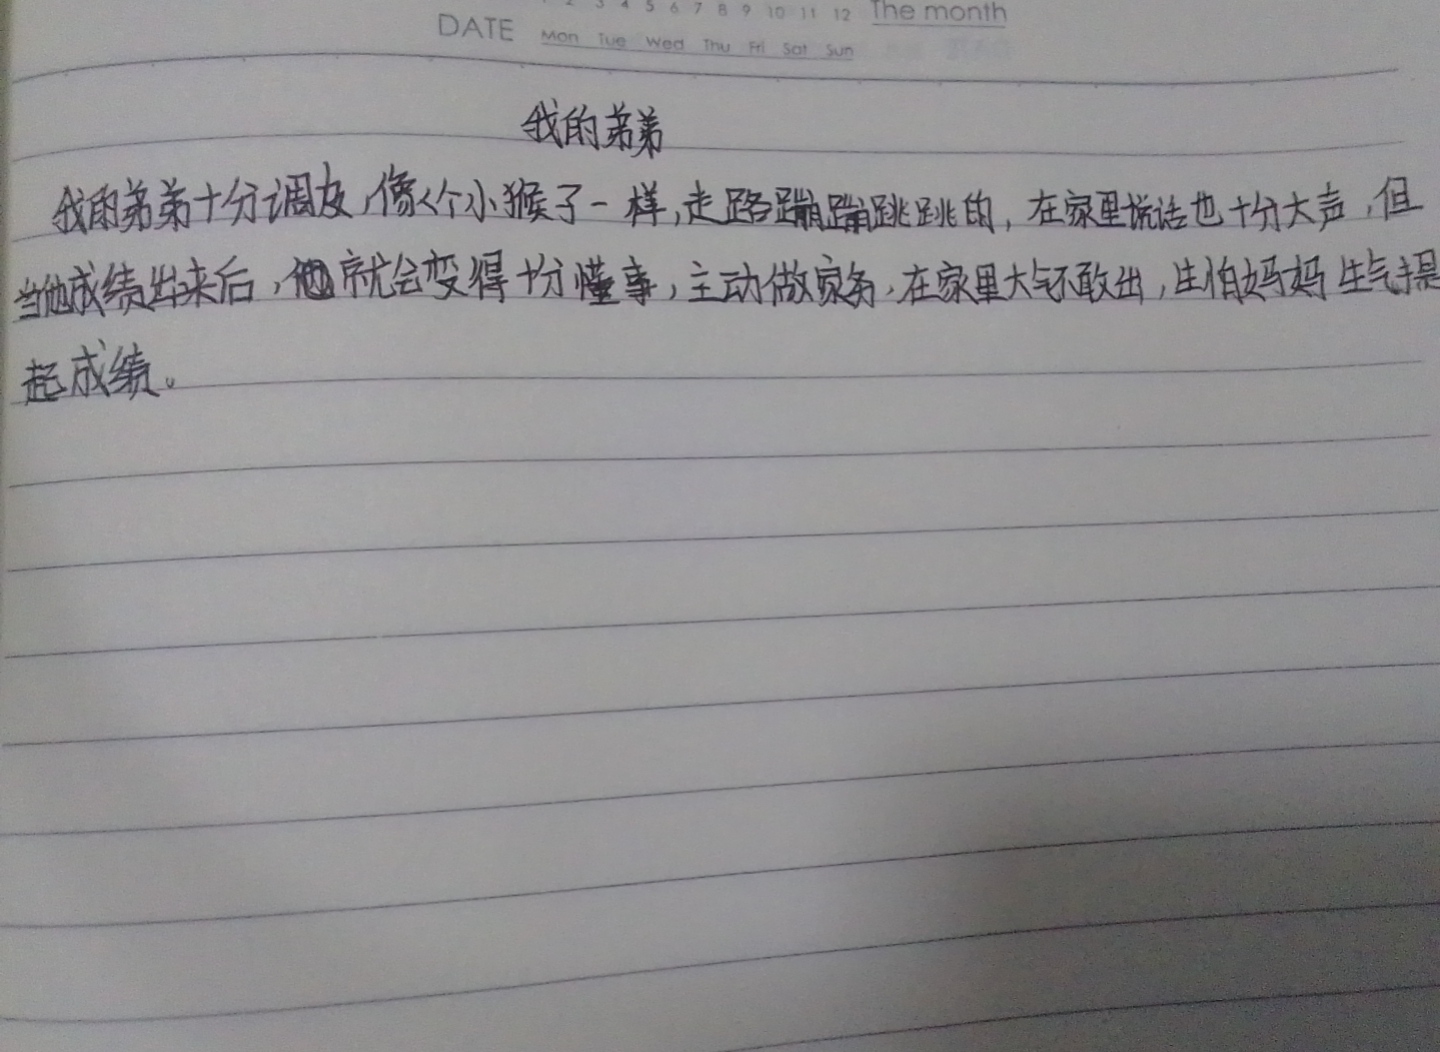 2 3 4 5 6 7 8 9 10 11 12 The month
DATE Mon Tue Wed Thu Fri Sat Sun
我的弟弟
我的弟弟十分调皮,像个小猴子一样,走路蹦蹦跳跳的,在家里说话也十分大声,但
当他成绩出来后,他就会变得十分懂事,主动做家务,在家里大气不敢出,生怕妈妈生气提
起成绩。